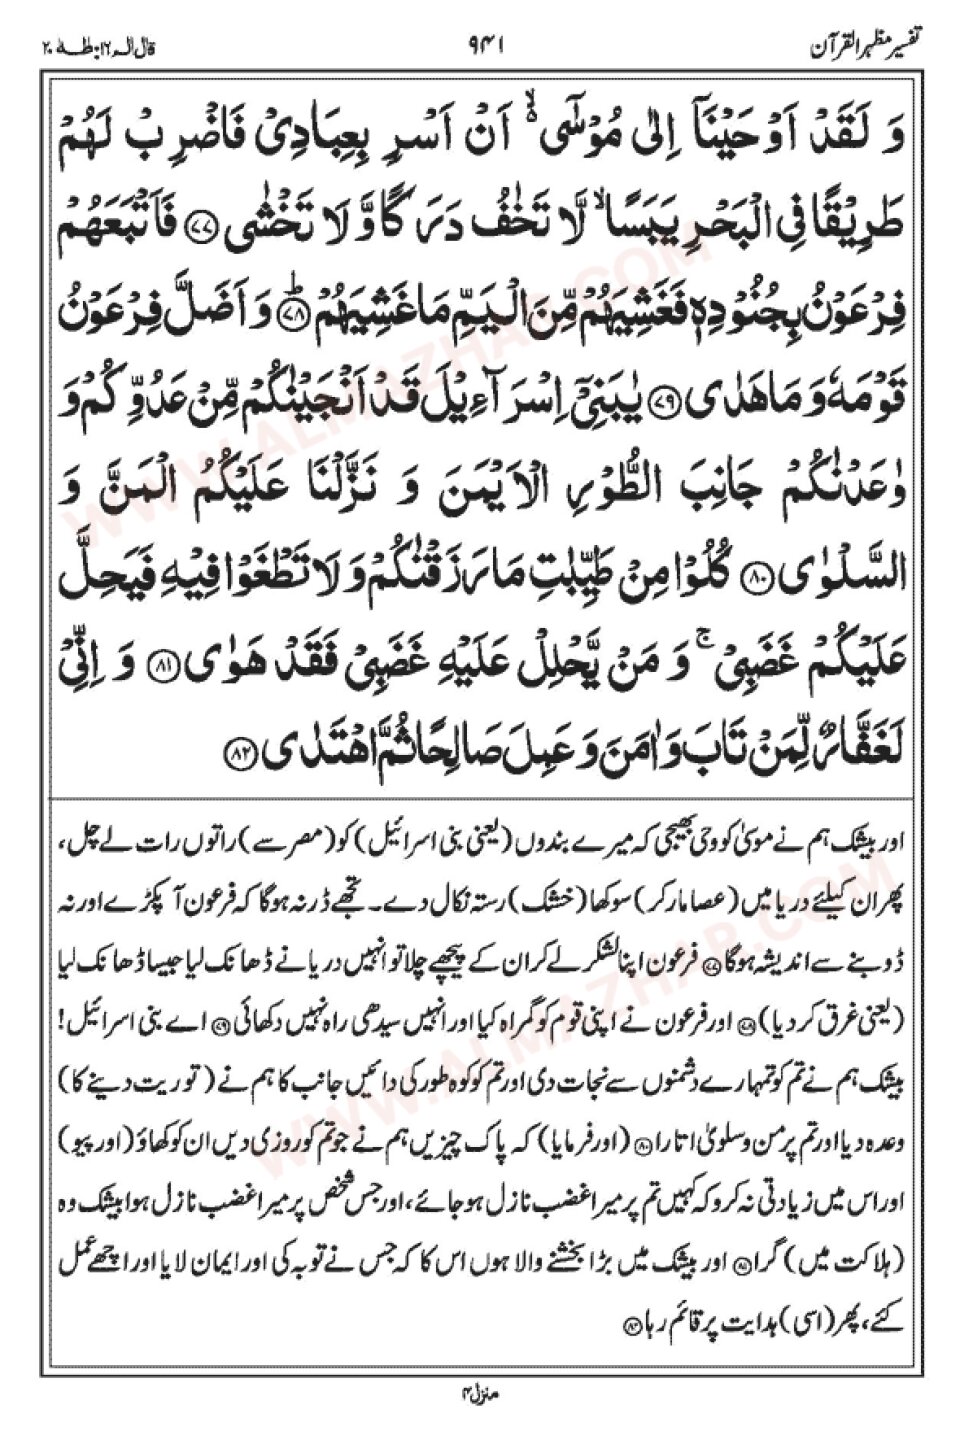 تفسیر مظہر القرآن ۹۴۱ قال الم ۱۶: طٰہٰ ۲۰
وَ لَقَدْ اَوْحَیْنَاۤ اِلٰی مُوْسٰۤی ۙ۬ اَنْ اَسْرِ بِعِبَادِیْ فَاضْرِبْ لَهُمْ
طَرِیْقًا فِی الْبَحْرِ یَبَسًا ۙ لَّا تَخٰفُ دَرَكًا وَّ لَا تَخْشٰی ﴿۷۷﴾ فَاَتْبَعَهُمْ
فِرْعَوْنُ بِجُنُوْدِهٖ فَغَشِیَهُمْ مِّنَ الْیَمِّ مَا غَشِیَهُمْ ﴿ؕ۷۸﴾ وَ اَضَلَّ فِرْعَوْنُ
قَوْمَهٗ وَ مَا هَدٰی ﴿۷۹﴾ یٰبَنِیْۤ اِسْرَآءِیْلَ قَدْ اَنْجَیْنٰكُمْ مِّنْ عَدُوِّكُمْ وَ
وٰعَدْنٰكُمْ جَانِبَ الطُّوْرِ الْاَیْمَنَ وَ نَزَّلْنَا عَلَیْكُمُ الْمَنَّ وَ
السَّلْوٰی ﴿۸۰﴾ كُلُوْا مِنْ طَیِّبٰتِ مَا رَزَقْنٰكُمْ وَ لَا تَطْغَوْا فِیْهِ فَیَحِلَّ
عَلَیْكُمْ غَضَبِیْ ۚ وَ مَنْ یَّحْلِلْ عَلَیْهِ غَضَبِیْ فَقَدْ هَوٰی ﴿۸۱﴾ وَ اِنِّیْ
لَغَفَّارٌ لِّمَنْ تَابَ وَ اٰمَنَ وَ عَمِلَ صَالِحًا ثُمَّ اهْتَدٰی ﴿۸۲﴾
اور بیشک ہم نے موسیٰ کو وحی بھیجی کہ میرے بندوں (یعنی بنی اسرائیل) کو (مصر سے) راتوں رات لے چل،
پھر ان کیلئے دریا میں (عصا مار کر) سوکھا (خشک) رستہ نکال دے۔ تجھے ڈر نہ ہوگا کہ فرعون آ پکڑے اور نہ
ڈوبنے سے اندیشہ ہوگا ﴿۷۷﴾ فرعون اپنا لشکر لے کر ان کے پیچھے چلا تو انہیں دریا نے ڈھانک لیا جیسا ڈھانک لیا
(یعنی غرق کر دیا) ﴿۷۸﴾ اور فرعون نے اپنی قوم کو گمراہ کیا اور انہیں سیدھی راہ نہیں دکھائی ﴿۷۹﴾ اے بنی اسرائیل!
بیشک ہم نے تم کو تمہارے دشمنوں سے نجات دی اور تم کو کوہ طور کی دائیں جانب کا ہم نے (توریت دینے کا)
وعدہ دیا اور تم پر من و سلویٰ اتارا ﴿۸۰﴾ (اور فرمایا) کہ پاک چیزیں ہم نے جو تم کو روزی دیں ان کو کھاؤ (اور پیو)
اور اس میں زیادتی نہ کرو کہ کہیں تم پر میرا غضب نازل ہو جائے، اور جس شخص پر میرا غضب نازل ہوا بیشک وہ
(ہلاکت میں) گرا ﴿۸۱﴾ اور بیشک میں بڑا بخشنے والا ہوں اس کا کہ جس نے توبہ کی اور ایمان لایا اور اچھے عمل
کئے، پھر (اسی) ہدایت پر قائم رہا ﴿۸۲﴾
منزل ۴
WWW.ALMAZHAR.COM
WWW.ALMAZHAR.COM